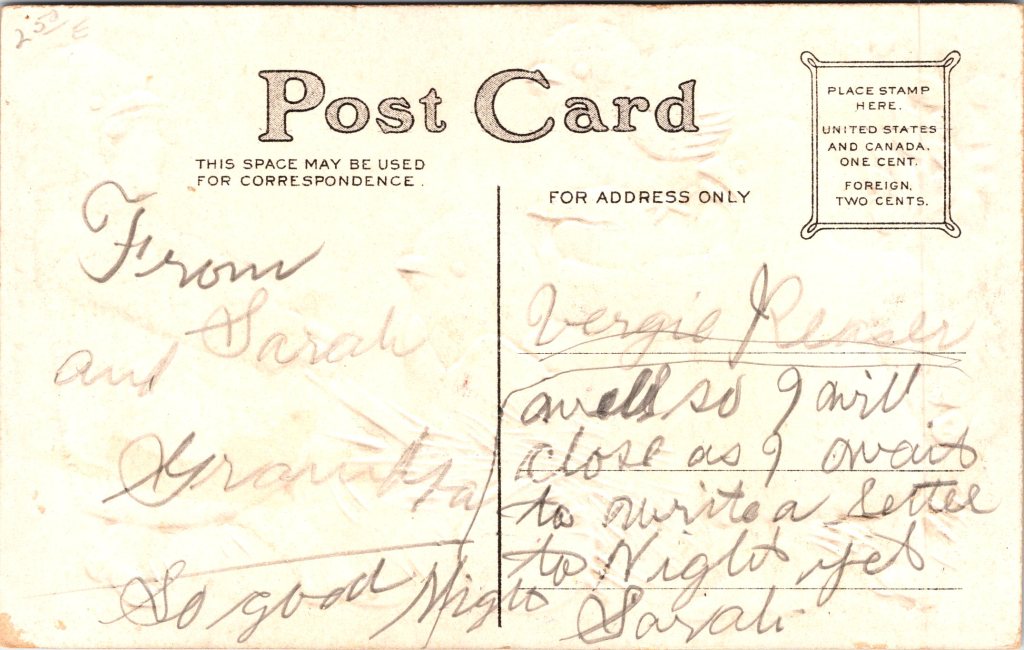 25
Post Card
THIS SPACE MAY BE USED
FOR CORRESPONDENCE.
FOR ADDRESS ONLY
PLACE STAMP
HERE.
UNITED STATES
AND CANADA.
ONE CENT.
FOREIGN,
TWO CENTS.
From
Sarah
and
Grandpa
So good Night
Vergie
well so I will
close as I wait
to write a letter
to Night yet
Sarah